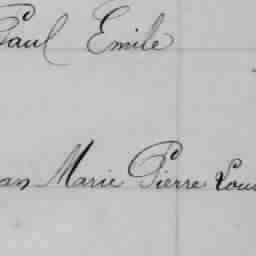 Paul Emile
an Marie Pierre Loui